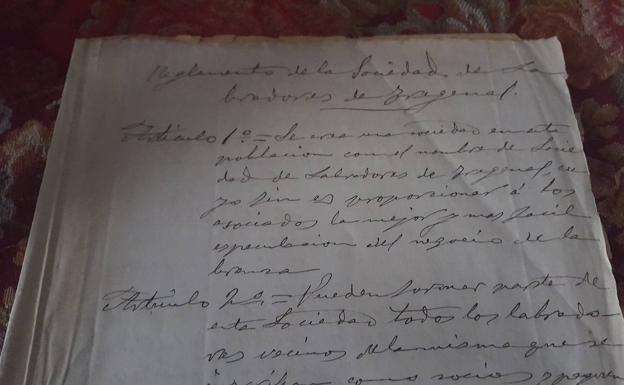 Reglamento de la Sociedad de La
bradores de Fregenal.
Artículo 1º = Se crea una sociedad en esta
poblacion con el nombre de Socie
dad de Labradores de Fregenal, cu
yo fin es proporcionar á los
asociados la mejor y mas facil
especulacion del negocio de la
branza
Artículo 2º = Pueden formar parte de
esta Sociedad todos los labrado-
res vecinos de la misma que se
inscriban como socios y paguen